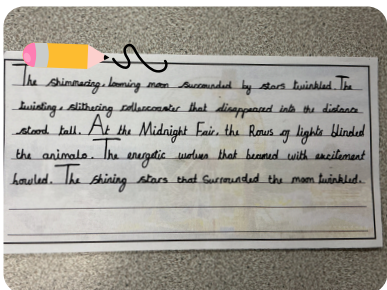 The shimmering, looming moon surrounded by stars twinkled. The
twisting, slithering rollercoaster that disappeared into the distance
stood tall. At the Midnight Fair, the Rows of lights blinded
the animals. The energetic wolves that beamed with excitement
howled. The shining stars that surrounded the moon twinkled.